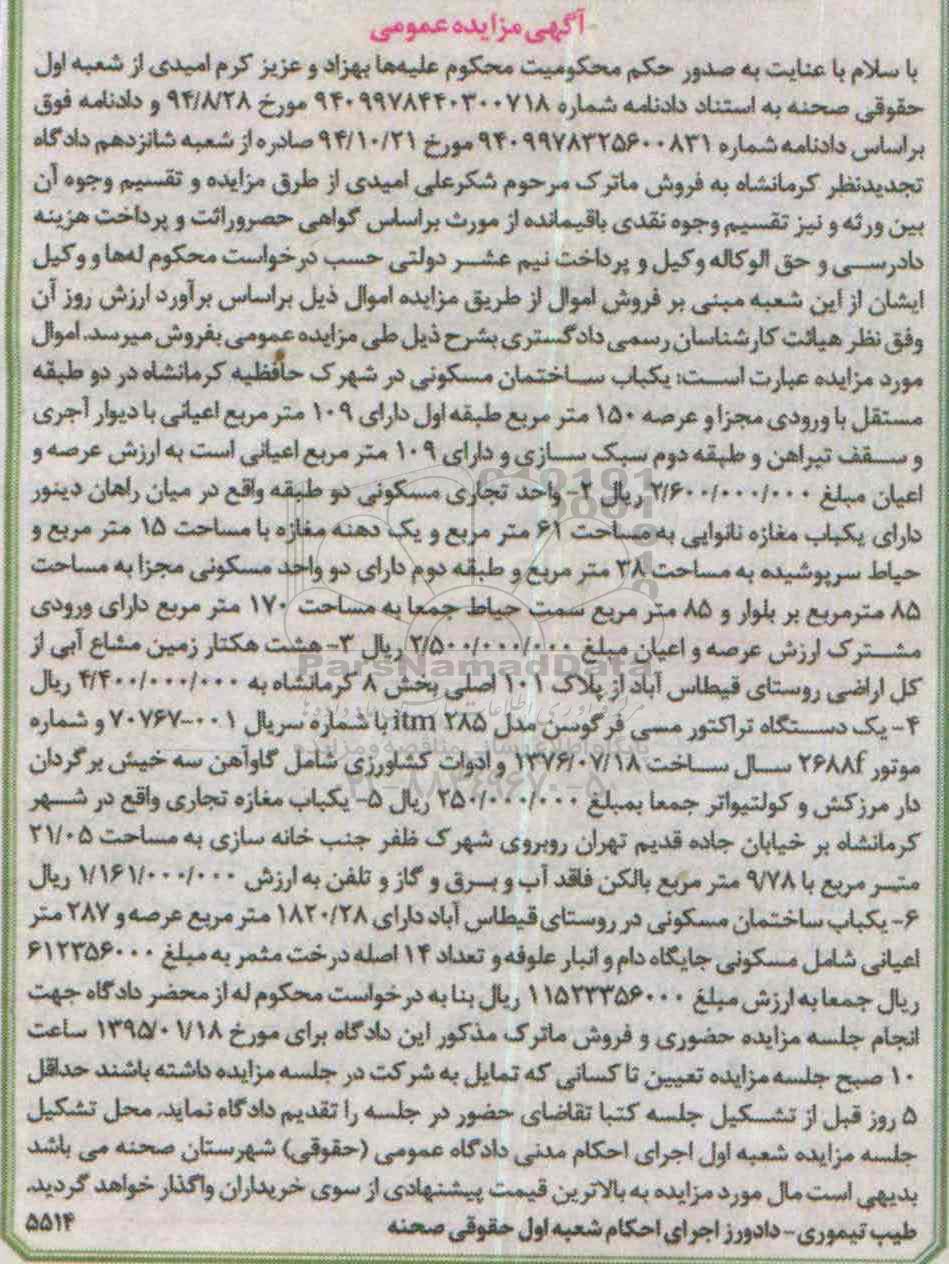 آگهی مزایده عمومی
با سلام با عنایت به صدور حکم محکومیت محکوم علیه‌ها بهزاد و عزیز کرم امیدی از شعبه اول
حقوقی صحنه به استناد دادنامه شماره ۹۴۰۹۹۷۸۴۴۰۳۰۰۷۱۸ مورخ ۹۴/۸/۲۸ و دادنامه فوق
براساس دادنامه شماره ۹۴۰۹۹۷۸۳۲۵۶۰۰۸۳۱ مورخ ۹۴/۱۰/۲۱ صادره از شعبه شانزدهم دادگاه
تجدیدنظر کرمانشاه به فروش ماترک مرحوم شکرعلی امیدی از طرق مزایده و تقسیم وجوه آن
بین ورثه و نیز تقسیم وجوه نقدی باقیمانده از مورث براساس گواهی حصروراثت و پرداخت هزینه
دادرسی و حق الوکاله وکیل و پرداخت نیم عشر دولتی حسب درخواست محکوم له‌ها و وکیل
ایشان از این شعبه مبنی بر فروش اموال از طریق مزایده اموال ذیل براساس برآورد ارزش روز آن
وفق نظر هیائت کارشناسان رسمی دادگستری بشرح ذیل طی مزایده عمومی بفروش میرسد. اموال
مورد مزایده عبارت است: یکباب ساختمان مسکونی در شهرک حافظیه کرمانشاه در دو طبقه
مستقل با ورودی مجزا و عرصه ۱۵۰ متر مربع طبقه اول دارای ۱۰۹ متر مربع اعیانی با دیوار آجری
و سقف تیراهن و طبقه دوم سبک سازی و دارای ۱۰۹ متر مربع اعیانی است به ارزش عرصه و
اعیان مبلغ ۲/۶۰۰/۰۰۰/۰۰۰ ریال ۲- واحد تجاری مسکونی دو طبقه واقع در میان راهان دینور
دارای یکباب مغازه نانوایی به مساحت ۶۱ متر مربع و یک دهنه مغازه با مساحت ۱۵ متر مربع و
حیاط سرپوشیده به مساحت ۳۸ متر مربع و طبقه دوم دارای دو واحد مسکونی مجزا به مساحت
۸۵ مترمربع بر بلوار و ۸۵ متر مربع سمت حیاط جمعا به مساحت ۱۷۰ متر مربع دارای ورودی
مشترک ارزش عرصه و اعیان مبلغ ۲/۵۰۰/۰۰۰/۰۰۰ ریال ۳- هشت هکتار زمین مشاع آبی از
کل اراضی روستای قیطاس آباد از پلاک ۱۰۱ اصلی بخش ۸ کرمانشاه به ۴/۴۰۰/۰۰۰/۰۰۰ ریال
۴- یک دستگاه تراکتور مسی فرگوسن مدل ۲۸۵ itm با شماره سریال ۰۰۱-۷۰۷۶۷ و شماره
موتور ۲۶۸۸f سال ساخت ۱۳۷۶/۰۷/۱۸ و ادوات کشاورزی شامل گاوآهن سه خیش برگردان
دار مرزکش و کولتیواتر جمعا بمبلغ ۲۵۰/۰۰۰/۰۰۰ ریال ۵- یکباب مغازه تجاری واقع در شهر
کرمانشاه بر خیابان جاده قدیم تهران روبروی شهرک ظفر جنب خانه سازی به مساحت ۲۱/۰۵
متر مربع با ۹/۷۸ متر مربع بالکن فاقد آب و برق و گاز و تلفن به ارزش ۱/۱۶۱/۰۰۰/۰۰۰ ریال
۶- یکباب ساختمان مسکونی در روستای قیطاس آباد دارای ۱۸۲۰/۲۸ متر مربع عرصه و ۲۸۷ متر
اعیانی شامل مسکونی جایگاه دام و انبار علوفه و تعداد ۱۴ اصله درخت مثمر به مبلغ ۶۱۲۳۵۶۰۰۰
ریال جمعا به ارزش مبلغ ۱۱۵۲۳۳۵۶۰۰۰ ریال بنا به درخواست محکوم له از محضر دادگاه جهت
انجام جلسه مزایده حضوری و فروش ماترک مذکور این دادگاه برای مورخ ۱۳۹۵/۰۱/۱۸ ساعت
۱۰ صبح جلسه مزایده تعیین تا کسانی که تمایل به شرکت در جلسه مزایده داشته باشند حداقل
۵ روز قبل از تشکیل جلسه کتبا تقاضای حضور در جلسه را تقدیم دادگاه نماید. محل تشکیل
جلسه مزایده شعبه اول اجرای احکام مدنی دادگاه عمومی (حقوقی) شهرستان صحنه می باشد
بدیهی است مال مورد مزایده به بالاترین قیمت پیشنهادی از سوی خریداران واگذار خواهد گردید.
طیب تیموری- دادورز اجرای احکام شعبه اول حقوقی صحنه ۵۵۱۴
ParsNamadData